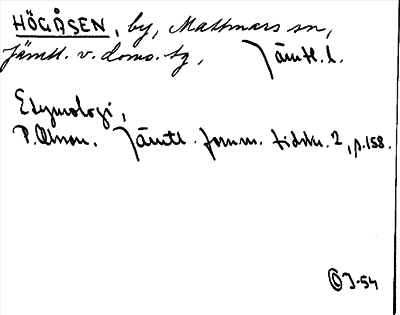 HÖGÅSEN, by, Mattmars sn,
Jämtl. v. doms. tg, Jämtl. l.
Etymologi,
P. Olsson. Jämtl. fornm. tidskr. 2, p. 158.
ÖJ-54